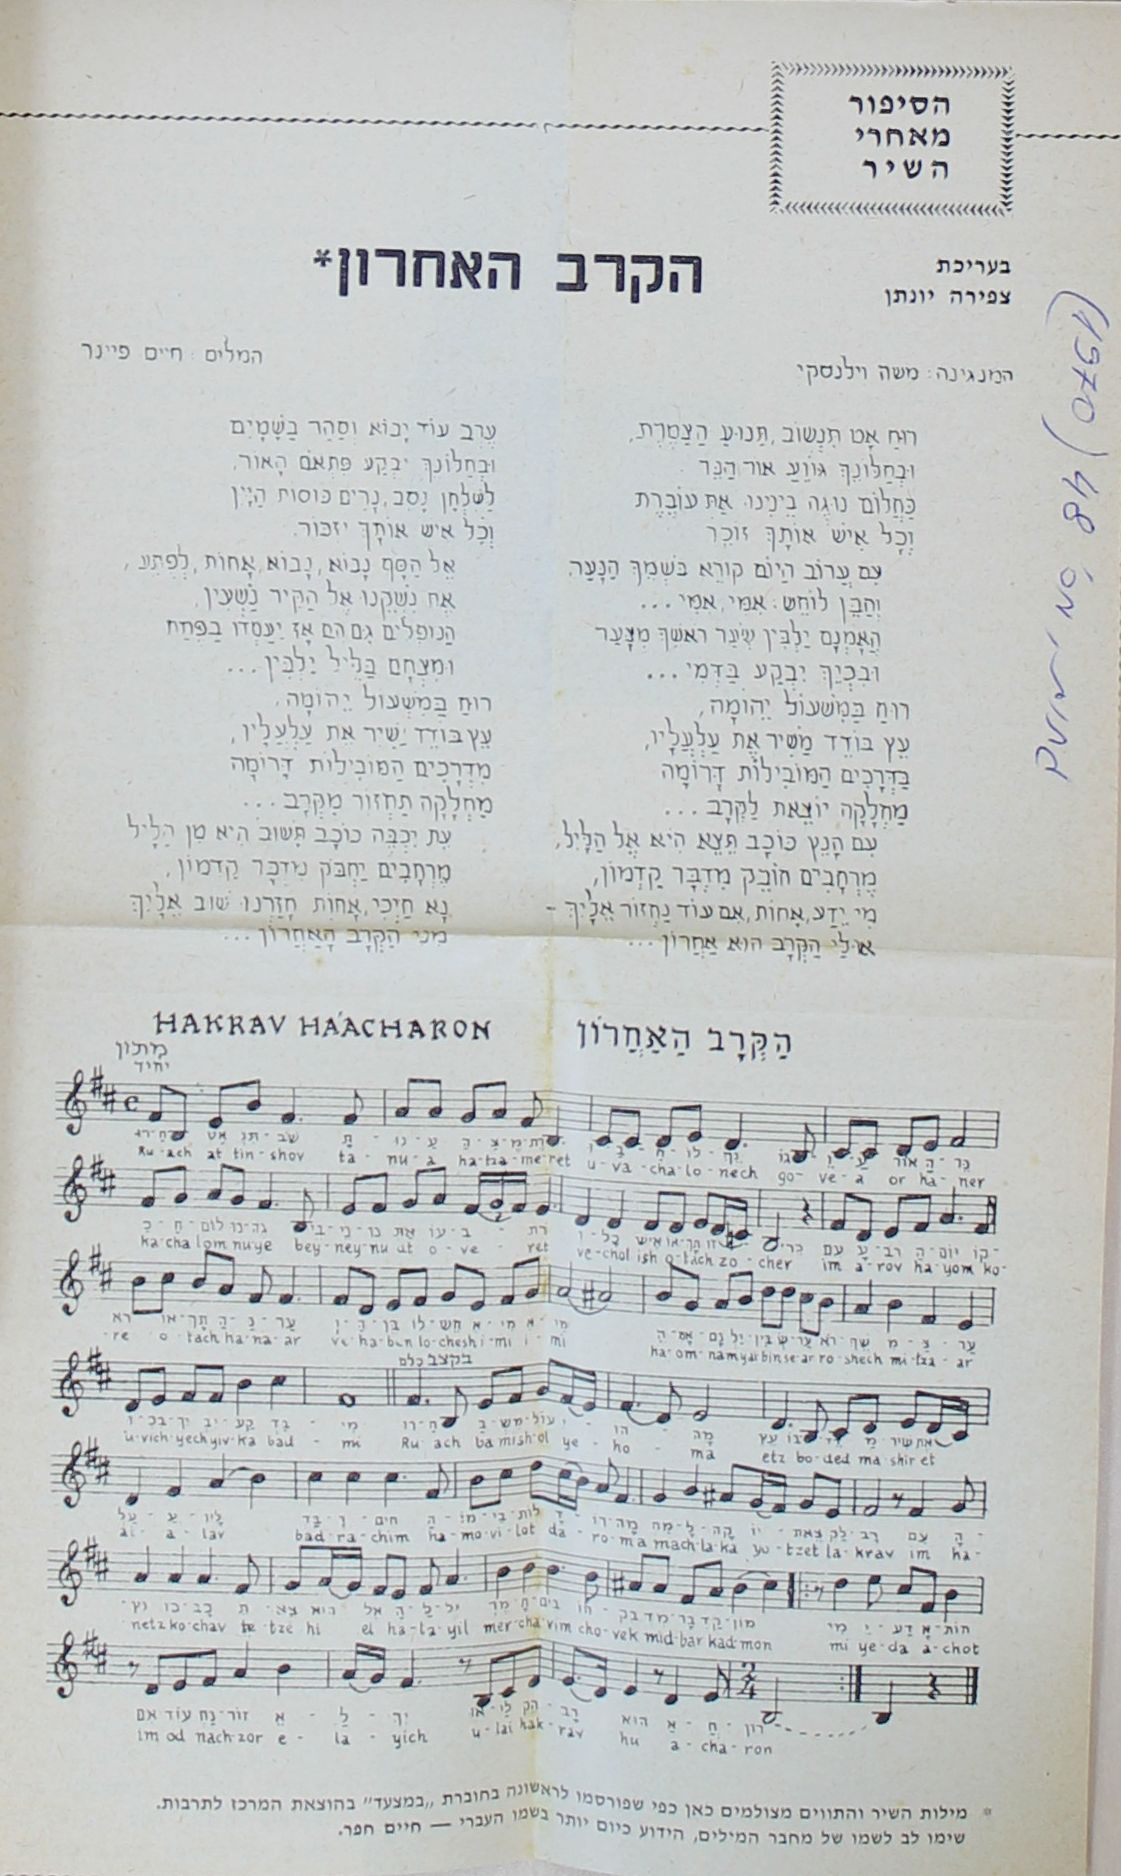 הסיפור
מאחרי
השיר
בעריכת
צפירה יונתן
הקרב האחרון*
המנגינה: משה וילנסקי
המלים: חיים פיינר
רוּחַ אָט תִּנְשׁוֹב, תָּנוּעַ הַצַּמֶּרֶת,
וּבְחַלּוֹנֵךְ גּוֹוֵעַ אוֹר הַנֵּר
כַּחֲלוֹם נוּגֶה בֵּינֵינוּ אַתְּ עוֹבֶרֶת
וְכָל אִישׁ אוֹתָךְ זוֹכֵר
עִם עֲרוֹב הַיּוֹם קוֹרֵא בִּשְׁמֵךְ הַנַּעַר
וְהַבֵּן לוֹחֵשׁ: אִמִּי, אִמִּי...
הַאֻמְנָם יַלְבִּין שְׂעַר רֹאשֵׁךְ מִצַּעַר
וּבִכְיֵךְ יִבְקַע בַּדְּמִי...
רוּחַ בַּמִּשְׁעוֹל יֵהוֹמָה,
עֵץ בּוֹדֵד מַשִּׁיר אֶת עַלְעַלָּיו,
בַּדְּרָכִים הַמּוֹבִילוֹת דָּרוֹמָה
מַחְלָקָה יוֹצֵאת לַקְּרָב...
עִם הָנֵץ כּוֹכָב תֵּצֵא הִיא אֶל הַלַּיִל,
מֶרְחָבִים חוֹבֵק מִדְבָּר קַדְמוֹן,
מִי יֵדַע, אָחוֹת, אִם עוֹד נַחְזוֹר אֵלַיִךְ -
אוּלַי הַקְּרָב הוּא אַחֲרוֹן...
עֶרֶב עוֹד יָבוֹא וְסַהַר בַּשָּׁמַיִם
וּבְחַלּוֹנֵךְ יִבְקַע פִּתְאֹם הָאוֹר,
לַשֻּׁלְחָן נָסֵב, נָרִים כּוֹסוֹת הַיַּיִן
וְכָל אִישׁ אוֹתָךְ יִזְכּוֹר.
אֶל הַסַּף נָבוֹא, נָבוֹא, אָחוֹת, לְפֶתַע,
אֶת נִשְׁקֵנוּ אֶל הַקִּיר נַשְׁעִין,
הַנּוֹפְלִים גַּם הֵם אָז יַעַמְדוּ בַּפֶּתַח
וּמִצְחָם בַּלֵּיל יַלְבִּין...
רוּחַ בַּמִּשְׁעוֹל יֵהוֹמָה,
עֵץ בּוֹדֵד יַשִּׁיר אֶת עַלְעַלָּיו,
מִדְּרָכִים הַמּוֹבִילוֹת דָּרוֹמָה
מַחְלָקָה תַּחְזוֹר מִקְּרָב...
עֵת יִכְבֶּה כּוֹכָב תָּשׁוּב הִיא מִן הַלַּיִל
מֶרְחָבִים יַחְבֹּק מִדְבָּר קַדְמוֹן,
נָא חַיְּכִי, אָחוֹת חָזַרְנוּ שׁוּב אֵלַיִךְ
מִנִּי הַקְּרָב הָאַחֲרוֹן...
HAKRAV HA'ACHARON
הַקְּרָב הָאַחֲרוֹן
מתון
יחיד
Ru-ach at tin-shov ta-nu-a ha-tza-me-ret u-va-cha-lo-nech go-ve-a or ha-ner
ka-cha lom nu-ge bey-ney-nu at o-ve-ret ve-chol ish o-tach zo-cher im a-rov ha-yom ko-
-re o-tach ha-na-ar ve-ha-ben lo-chesh i-mi i-mi ha-om-nam yal-bin se-ar ro-shech mi-tza-ar
בקצב כלם
u-vich-yech yiv-ka bad-mi Ru-ach ba mish-ol ye-ho-ma etz bo-ded ma-shir et
al-a-lav bad-ra-chim ha-mo-vi-lot da-ro-ma mach-la-ka yo-tzet la-krav im ha-
netz ko-chav te-tze hi el ha-la-yil mer-cha-vim cho-vek mid-bar kad-mon mi ye-da a-chot
im od nach-zor e-la-yich u-lai hak-rav hu a-cha-ron
* מילות השיר והתווים מצולמים כאן כפי שפורסמו לראשונה בחוברת „במצעד" בהוצאת המרכז לתרבות.
שימו לב לשמו של מחבר המילים, הידוע כיום יותר בשמו העברי — חיים חפר.
(1970) 48